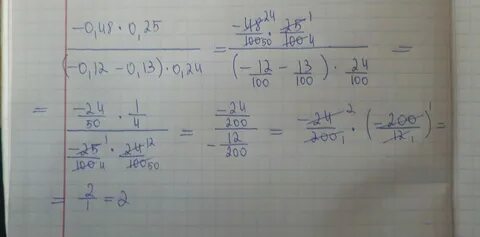 (-0,48 · 0,25) / ((-0,12 - 0,13) · 0,24) = (-48²⁴/100₅₀ · 25¹/100₄) / ((-12/100 - 13/100) · 24/100) =
= (-24/50 · 1/4) / (-25¹/100₄ · 24¹²/100₅₀) = (-24/200) / (-12/200) = -24²/200₁ · (-200¹/12₁) =
= 2/1 = 2